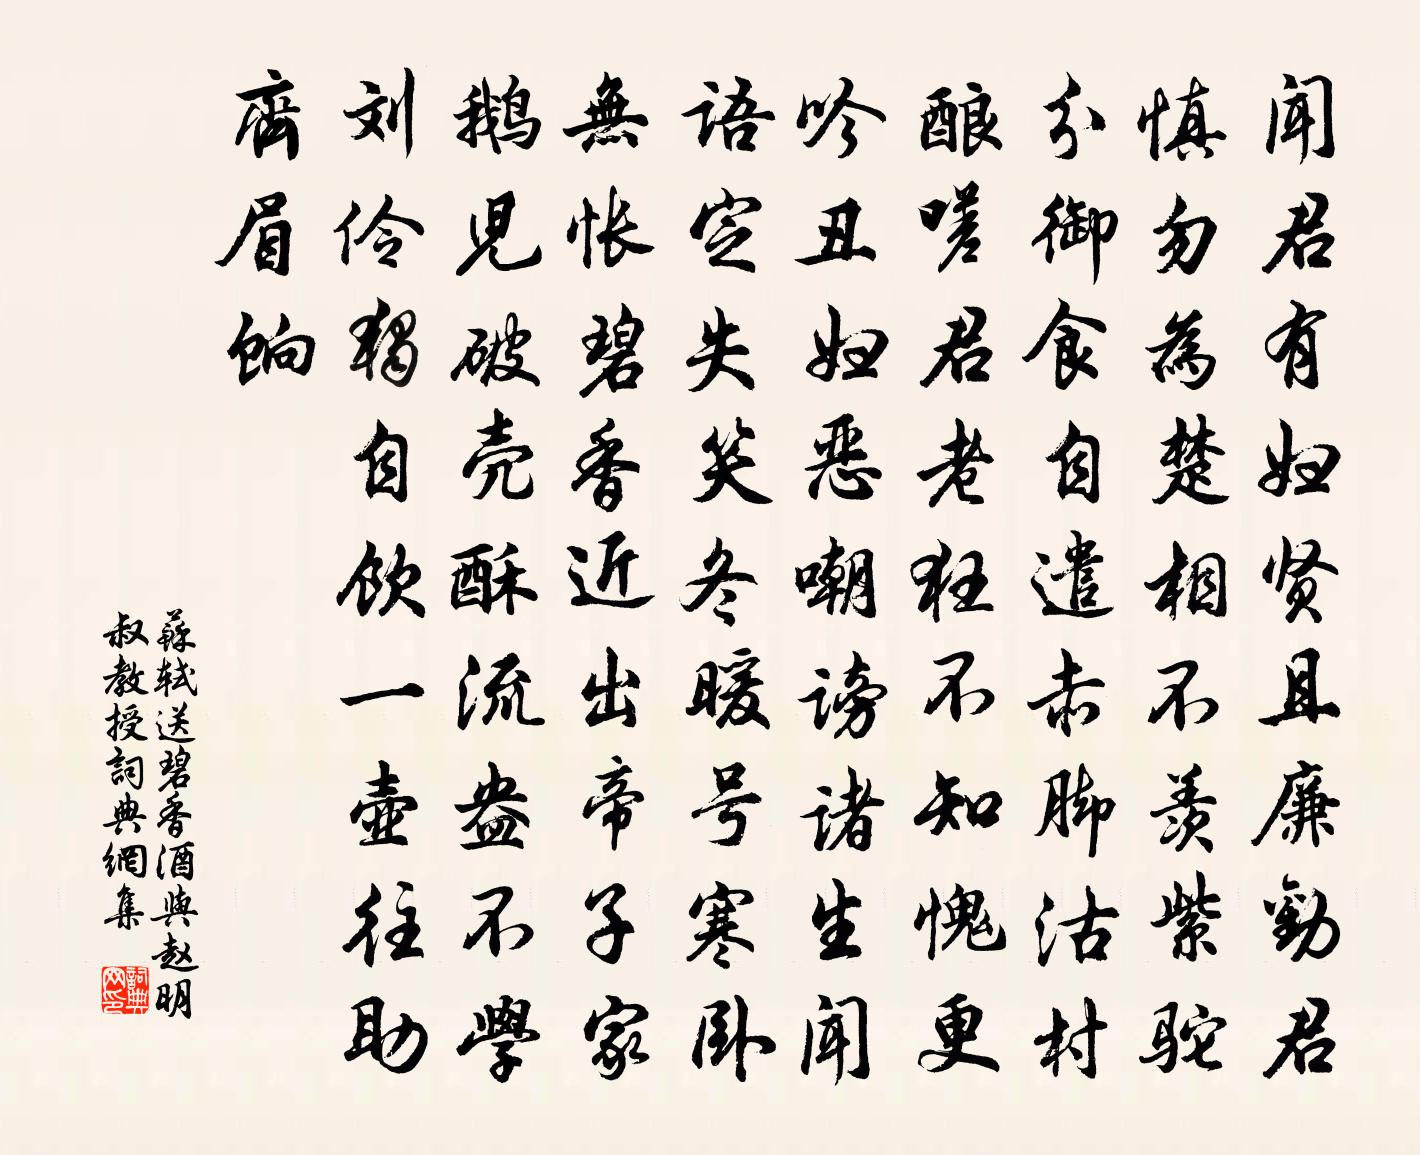 闻君有妇贤且廉勸君
慎勿為楚相不羨紫驼
分御食自遣赤脚沽村
酿嗟君老狂不知愧更
吟丑妇恶嘲謗诸生闻
语定失笑冬暖号寒卧
無怅碧香近出帝子家
鹅児破壳酥流盎不學
刘伶独自飲一壺往助
齊眉餉
蘇軾送碧香酒與赵明
叔教授詞典網集
詞典网印